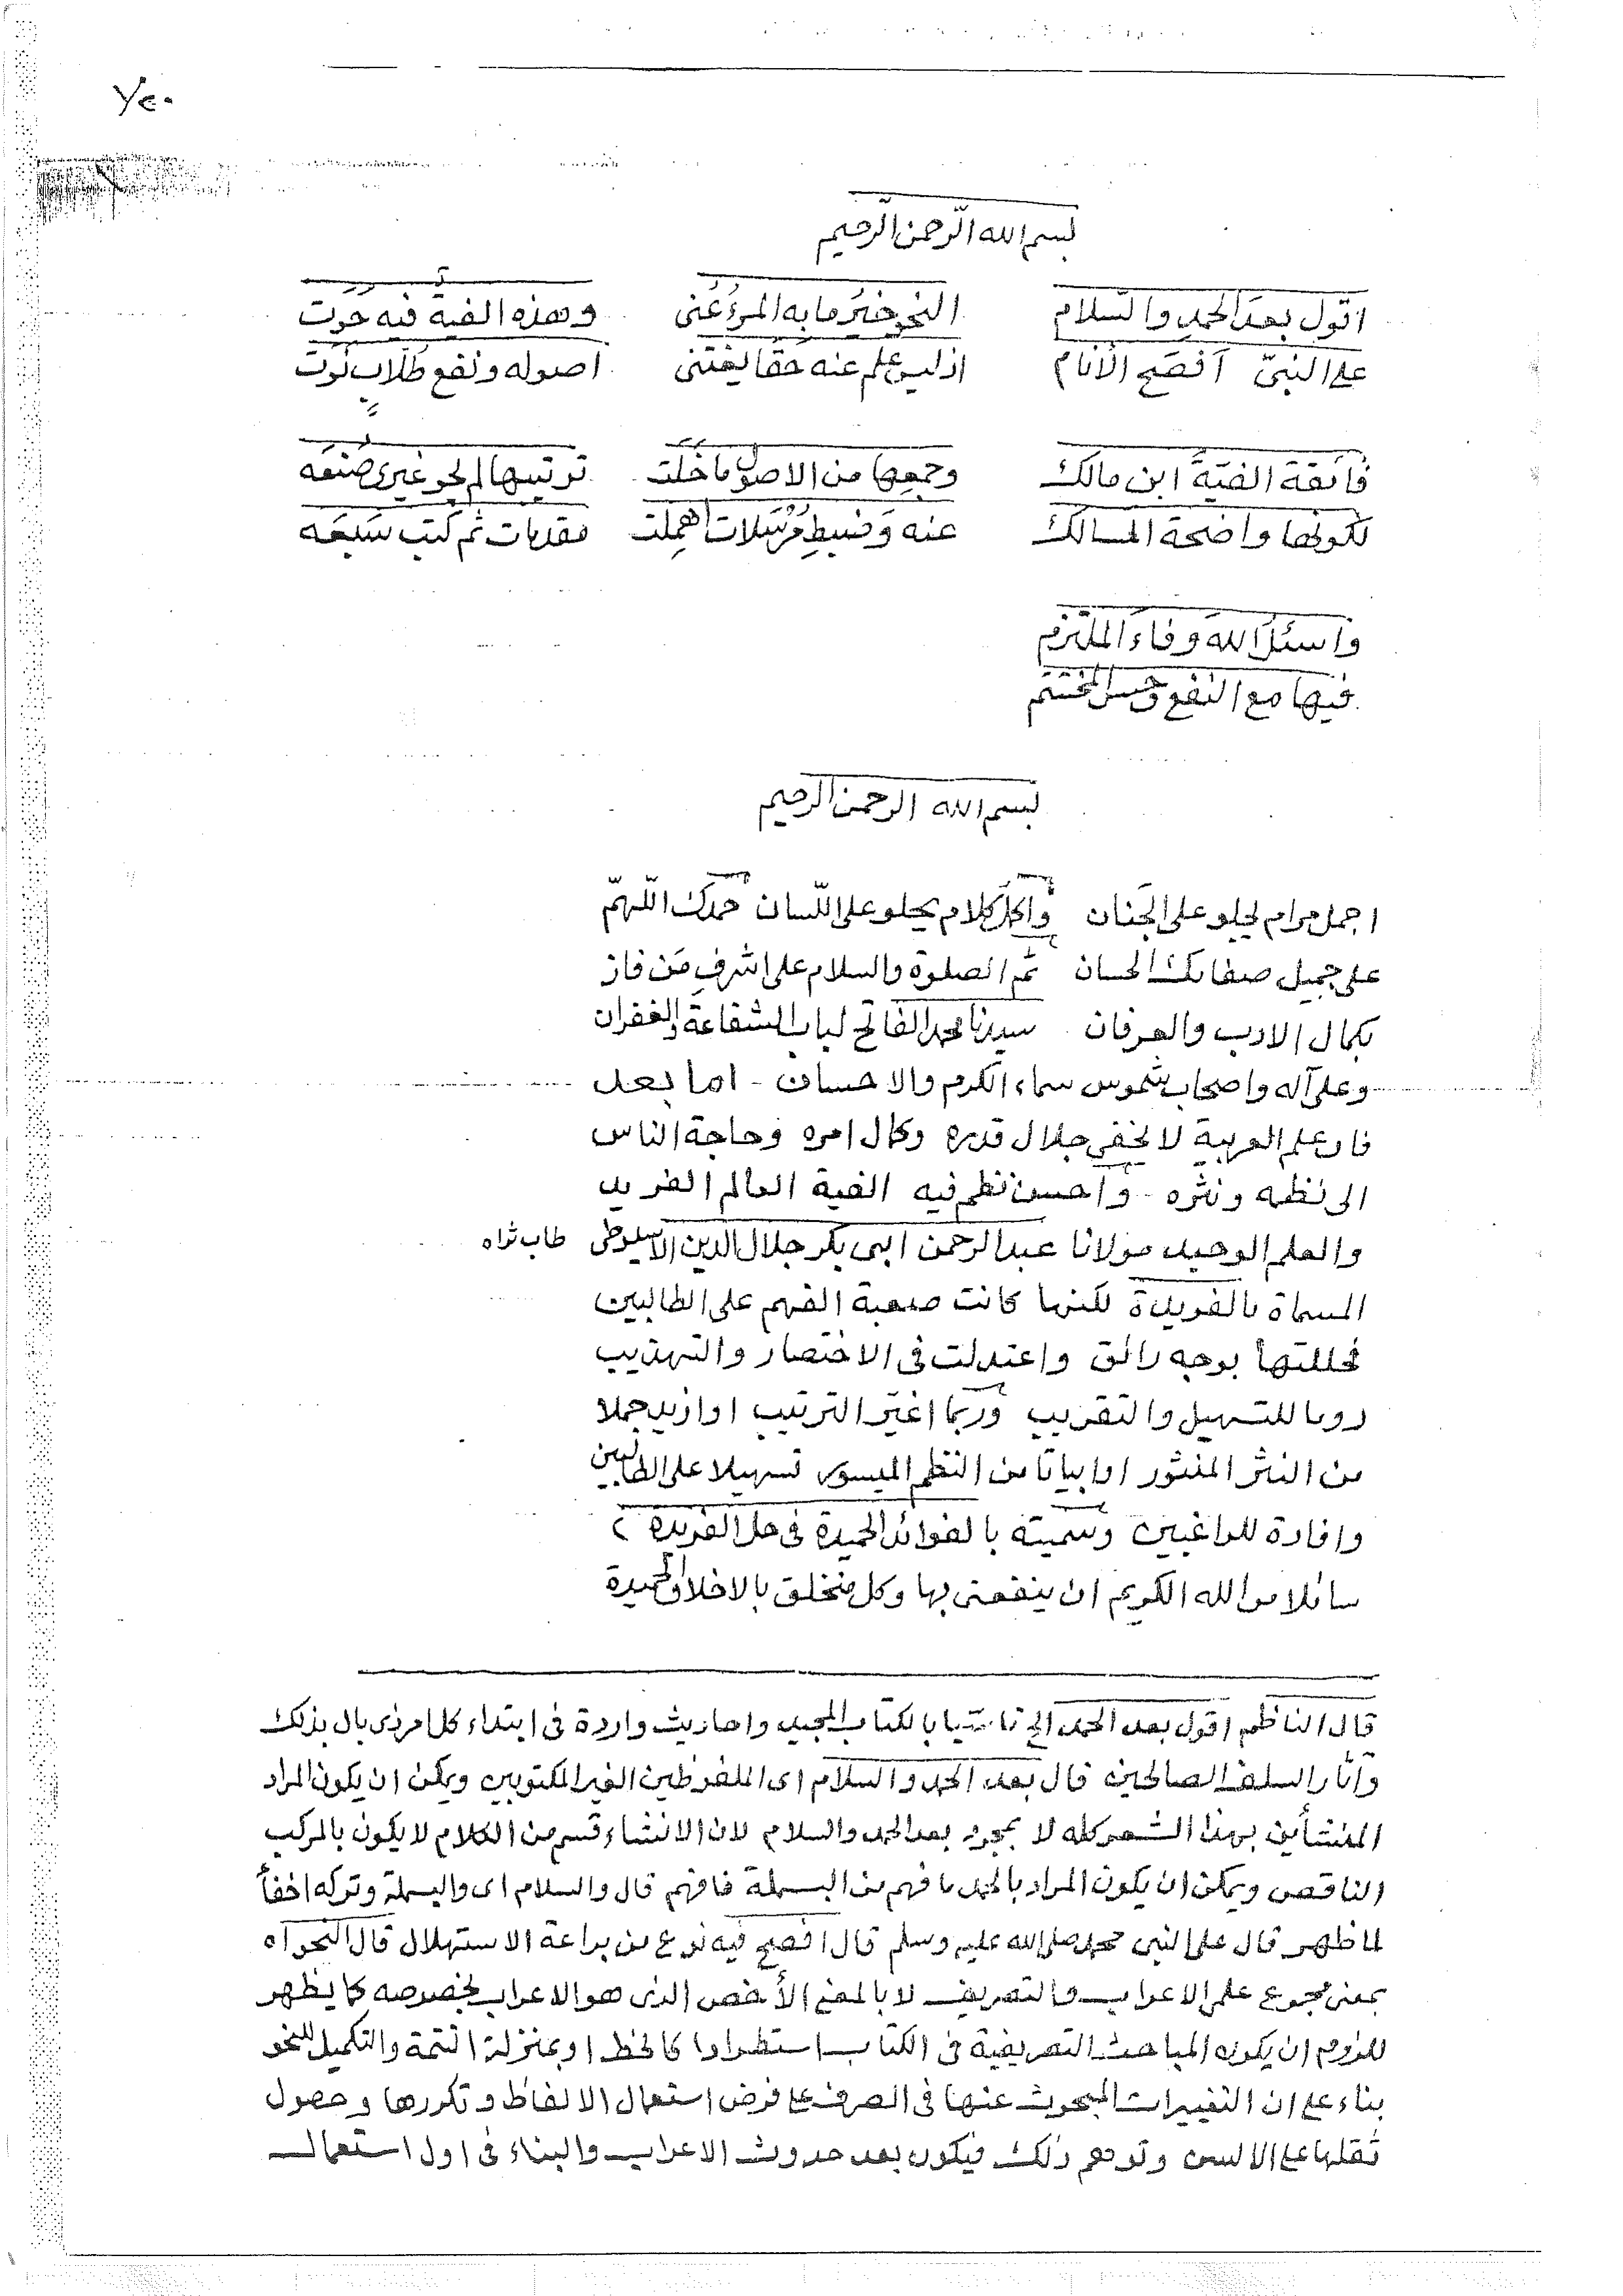 ٧٤٠
بسم الله الرّحمن الرّحيم
اقول بعدَ الحمدِ والسّلام النحو خيرُ ما به المرءُ عُنى وهذه الفيةٌ فيه حوت
على النبىّ اَفصَحِ الاَنام اذ ليس علم عنه حَقا يغتنى اصوله ونفع طلّاب نوَت
فائقة الفيّةَ ابن مالك وجمعِها من الاصول ما خلت ترتيبها لم يحو غيرى صَنعَه
لكونها واضحة المسالك عنه وَضبطِ مُرْسَلات اُهمِلت مقدمات ثم كتب سَبعَه
واسئلُ اللهَ وفاءَ الملتزم
فيها مع النفع وحسن المختتم
بسم الله الرحمن الرحيم
اجمل مرام يجلو على الجَنان واكمل كلام يحلو على اللّسان حمدك اللّهمّ
على جميل صفاتك الحسان ثم الصلوة والسلام على اشرفِ مَن فاز
بكمال الادب والعرفان سيدنا محمد الفاتح لباب الشفاعة والغفران
وعلى آله واصحاب شموس سماء الكرم والاحسان - اما بعد
فان علم العربية لا يخفى جلال قدره وكمال امره وحاجة الناس
الى نظمه ونثره - واحسن نظم فيه الفية العالم الفريد
والعلم الوحيد مولانا عبد الرحمن ابى بكر جلال الدين الاسيوطى طاب ثراه
المسماة بالفريدة لكنها كانت صعبة الفهم على الطالبين
فحللتها بوجه رائق واعتدلت فى الاختصار والتهذيب
روما للتسهيل والتقريب وربما اغيّر الترتيب او ازيد جملا
من النثر المنثور او ابياتا من النظم الميسور تسهيلا على الطالبين
وافادة للراغبين وسميته بالفوائد الحميدة فى حل الفريدة
سائلا من الله الكريم ان ينفعنى بها وكل متخلق بالاخلاق الحميدة
قال الناظم اقول بعد الحمد الخ تاسّيا بالكتاب المجيد واحاديث واردة فى ابتداء كل امر ذى بال بذلك
وآثار السلف الصالحين قال بعد الحمد والسلام اى الملفوظين الغير المكتوبين ويمكن ان يكون المراد
المنشأين بهذا الشعر كله لا بمجرد بعد الحمد والسلام لان الانشاء قسم من الكلام لا يكون بالمركب
الناقص ويمكن ان يكون المراد بالحمد ما فهم من البسملة فافهم قال والسلام اى والبسملة وتركه اخفأ
لما ظهر قال على النبى محمد صلى الله عليه وسلم قال افصح فيه نوع من براعة الاستهلال قال النحو اه
بمعنى مجموع علمى الاعراب والتصريف لا بالمعنى الأخص الذى هو الاعراب بخصوصه كما يظهر
للزوم ان يكون المباحث التصريفية فى الكتاب استطرادا كالخط او بمنزلة التتمة والتكميل للنحو
بناء على ان التغييرات المبحوث عنها فى الصرف على فرض استعمال الالفاظ وتكررها وحصول
ثقلها على الالسن وتوهم ذلك فيكون بعد حدوث الاعراب والبناء فى اول استعمال